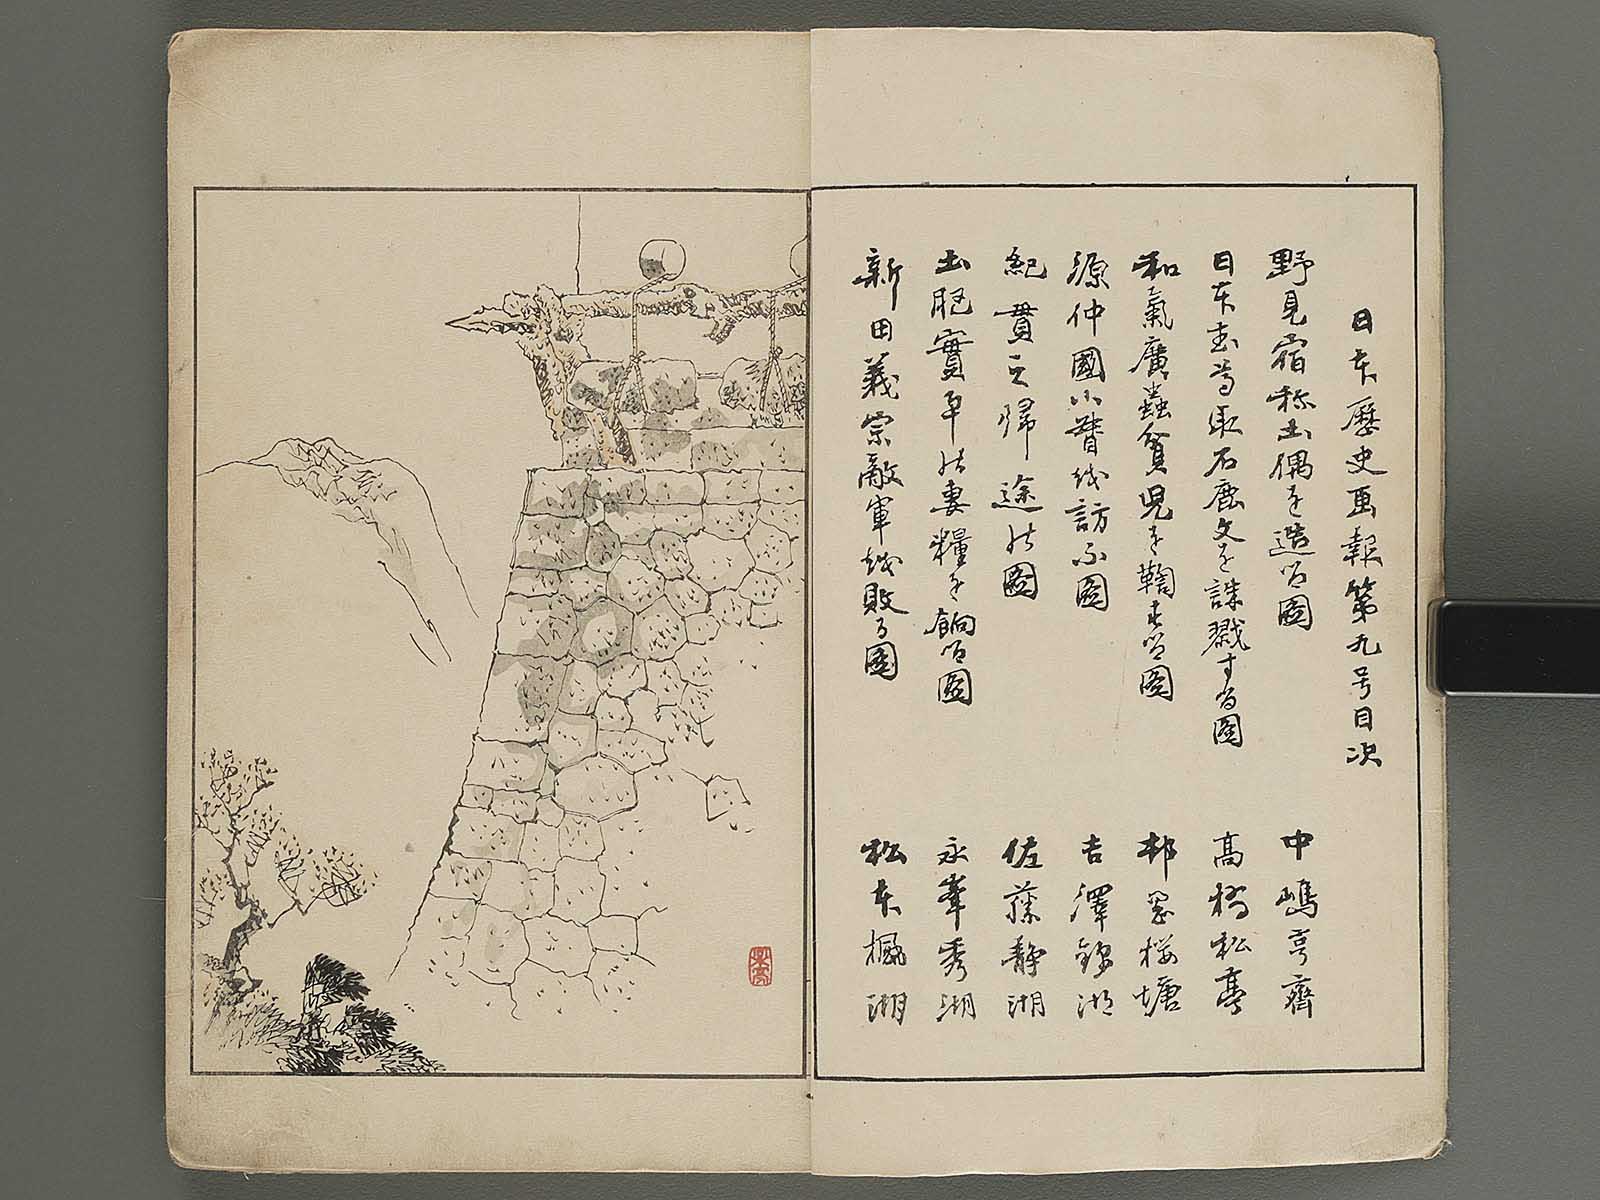 日本歴史画報第九号目次
野見宿祢土偶を造る図 中嶋亨齋
日本武尊取石鹿文を誅戮する図 高橋松亭
和氣廣蟲貧児を鞠する図 邨岡桜塘
源仲國小督越訪ふ図 吉澤錦湖
紀貫之帰途の図 佐藤静湖
土肥實平の妻糧を餉る図 永峯秀湖
新田義宗敵軍越敗る図 松本楓湖